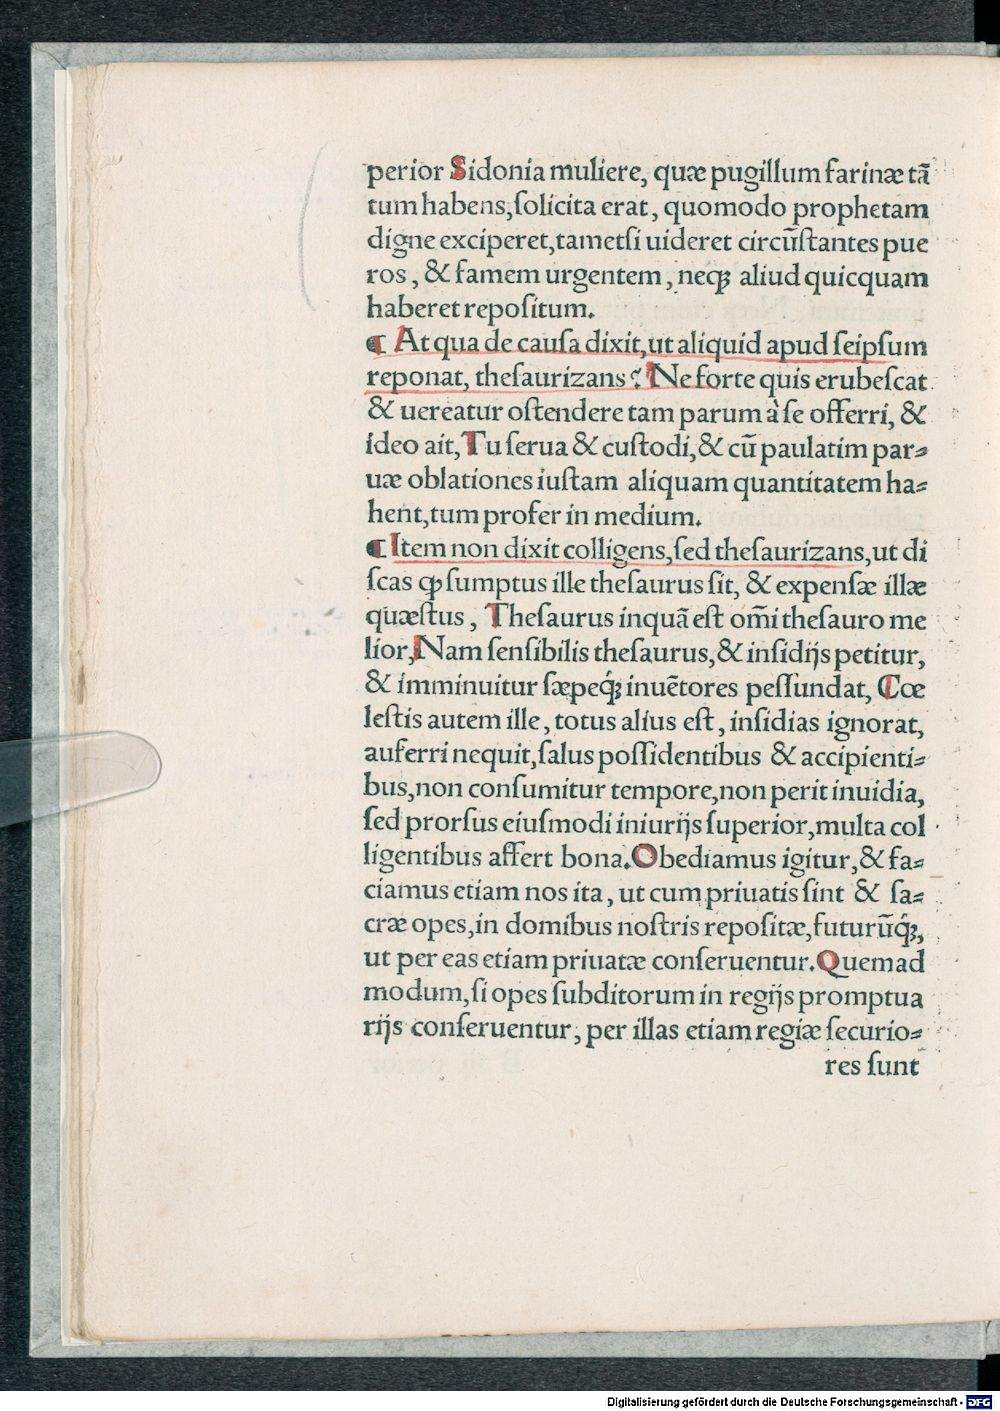 perior Sidonia muliere, quæ pugillum farinæ tã
tum habens, ſolicita erat, quomodo prophetam
digne exciperet, tametſi uideret circũſtantes pue
ros, & famem urgentem, neqꝫ aliud quicquam
haberet repoſitum.
¶ At qua de cauſa dixit, ut aliquid apud ſeipſum
reponat, theſaurizans? Ne forte quis erubeſcat
& uereatur oſtendere tam parum à ſe offerri, &
ideo ait, Tu ſerua & cuſtodi, & cũ paulatim par⸗
uæ oblationes iuſtam aliquam quantitatem ha⸗
hent, tum profer in medium.
¶ Item non dixit colligens, ſed theſaurizans, ut di
ſcas ꝙ ſumptus ille theſaurus ſit, & expenſæ illæ
quæſtus, Theſaurus inquã eſt om̃i theſauro me
lior, Nam ſenſibilis theſaurus, & inſidijs petitur,
& imminuitur ſæpeqꝫ́ inuẽtores peſſundat, Cœ
leſtis autem ille, totus alius eſt, inſidias ignorat,
auferri nequit, ſalus poſſidentibus & accipienti⸗
bus, non conſumitur tempore, non perit inuidia,
ſed prorſus eiuſmodi iniurijs ſuperior, multa col
ligentibus affert bona. Obediamus igitur, & fa⸗
ciamus etiam nos ita, ut cum priuatis ſint & ſa⸗
cræ opes, in domibus noſtris repoſitæ, futurũqꝫ́,
ut per eas etiam priuatæ conſeruentur. Quemad
modum, ſi opes ſubditorum in regijs promptua
rijs conſeruentur, per illas etiam regiæ ſecurio⸗
res ſunt
Digitalisierung gefördert durch die Deutsche Forschungsgemeinschaft - DFG